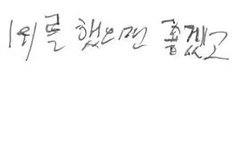 1위를 했으면 좋겠고